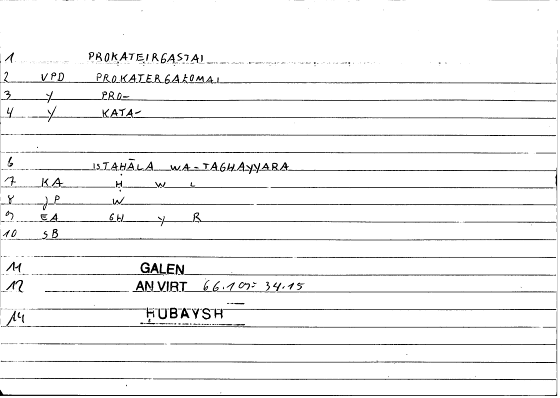 1 PROKATEIRGASTAI
2 VPD PROKATERGAZOMAI
3 y PRO-
4 y KATA-
6 ISTAHĀLA WA-TAGHAYYARA
7 KA Ḥ W L
8 JP W
9 EA GH Y R
10 SB
11 GALEN
12 AN VIRT 66.10 = 34.15
14 ḤUBAYSH